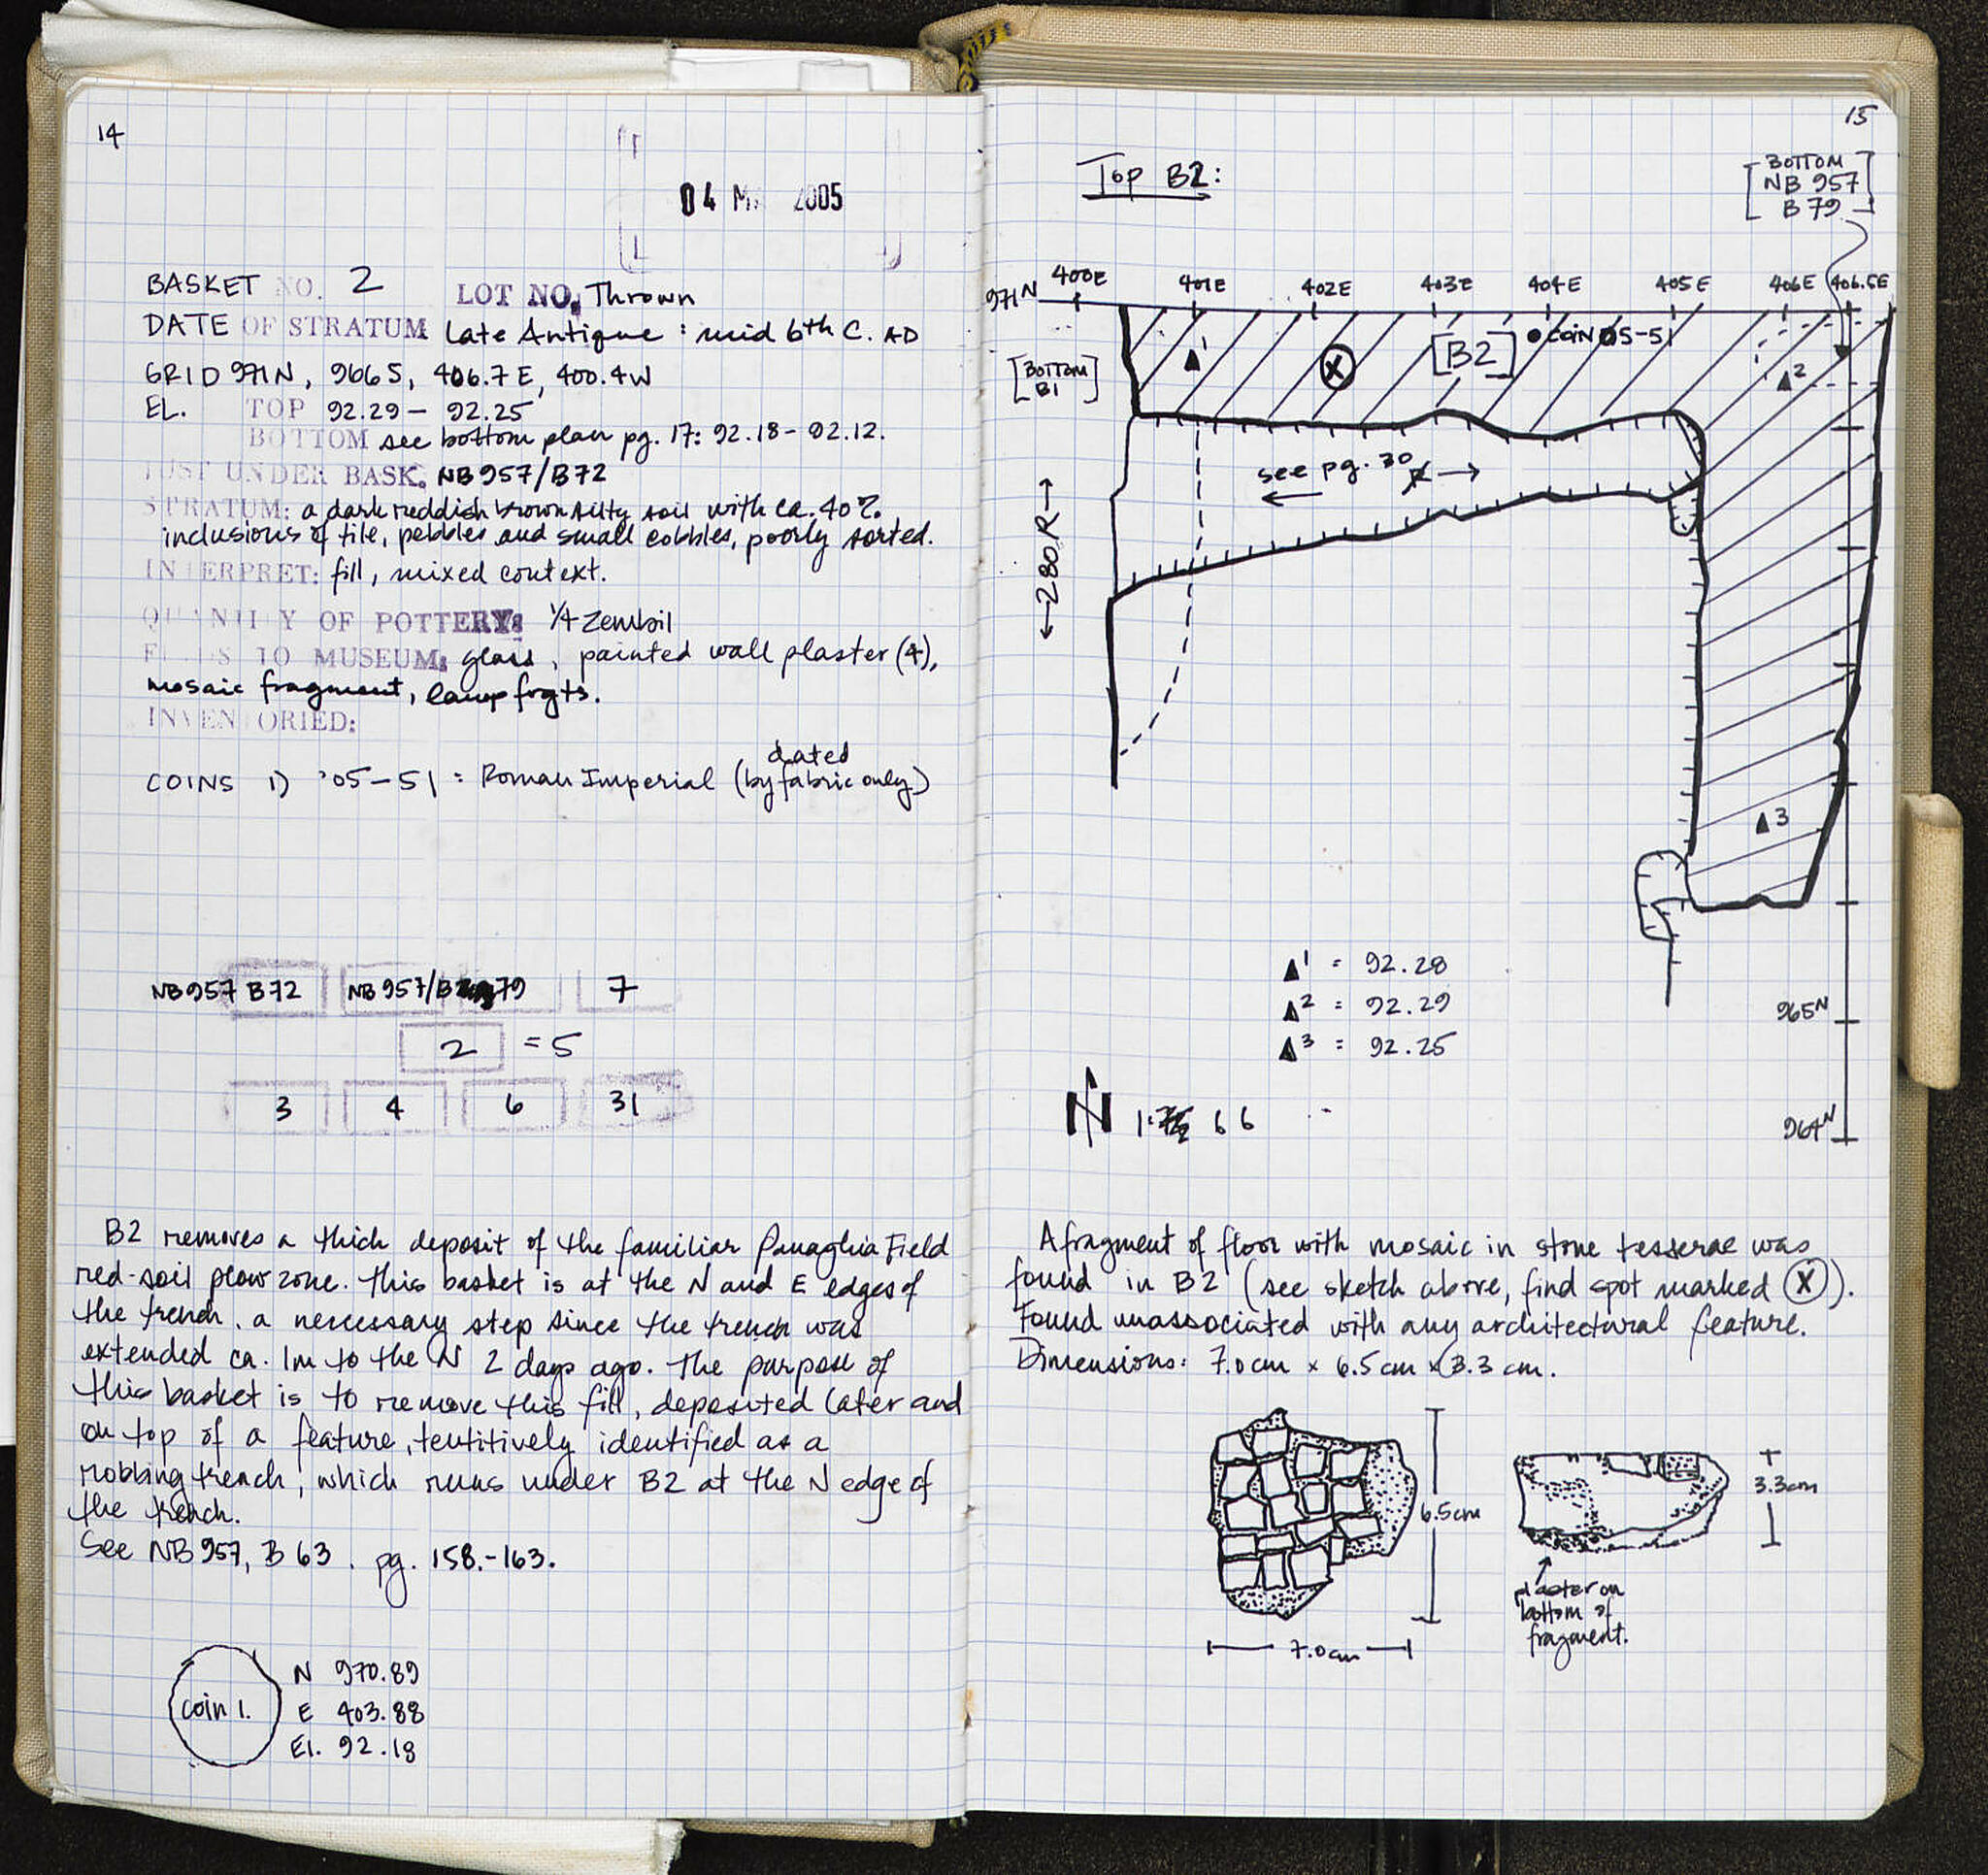 14
04 M 2005
BASKET NO. 2 LOT NO. Thrown
DATE OF STRATUM Late Antique : mid 6th C. AD
GRID 971N, 966S, 406.7E, 400.4W
EL. TOP 92.29 - 92.25
BOTTOM see bottom plan pg. 17: 92.18 - 92.12.
JUST UNDER BASK. NB957/B72
STRATUM: a dark reddish brown silty soil with ca. 40%
inclusions of tile, pebbles and small cobbles, poorly sorted.
INTERPRET: fill, mixed context.
QUANTITY OF POTTERY: 1/4 Zembil
FINDS TO MUSEUM: glass, painted wall plaster (4),
mosaic fragment, lamp frgts.
INVENTORIED:
COINS 1) '05-51 = Roman Imperial (by fabric only)
dated
NB957 B72 NB957/B 79 7
2 = 5
3 4 6 31
B2 removes a thick deposit of the familiar Panaghia Field
red-soil plow zone. This basket is at the N and E edges of
the trench, a necessary step since the trench was
extended ca. 1m to the N 2 days ago. The purpose of
this basket is to remove this fill, deposited later and
on top of a feature, tentitively identified as a
robbing trench, which runs under B2 at the N edge of
the trench.
See NB957, B63, pg. 158.-163.
coin 1.
N 970.89
E 403.88
El. 92.18
15
Top B2:
[BOTTOM
NB 957
B 79]
971N 400E 401E 402E 403E 404E 405E 406E 406.5E
[BOTTOM
B1]
1 X [B2] coin 05-51 2
see pg. 30
←280 R→
3
1 = 92.28
2 = 92.29
3 = 92.25
965N
N 1: 66
964N
A fragment of floor with mosaic in stone tesserae was
found in B2 (see sketch above, find spot marked X).
Found unassociated with any architectural feature.
Dimensions: 7.0cm x 6.5cm x 3.3 cm.
6.5cm
3.3cm
plaster on
bottom of
fragment.
7.0cm